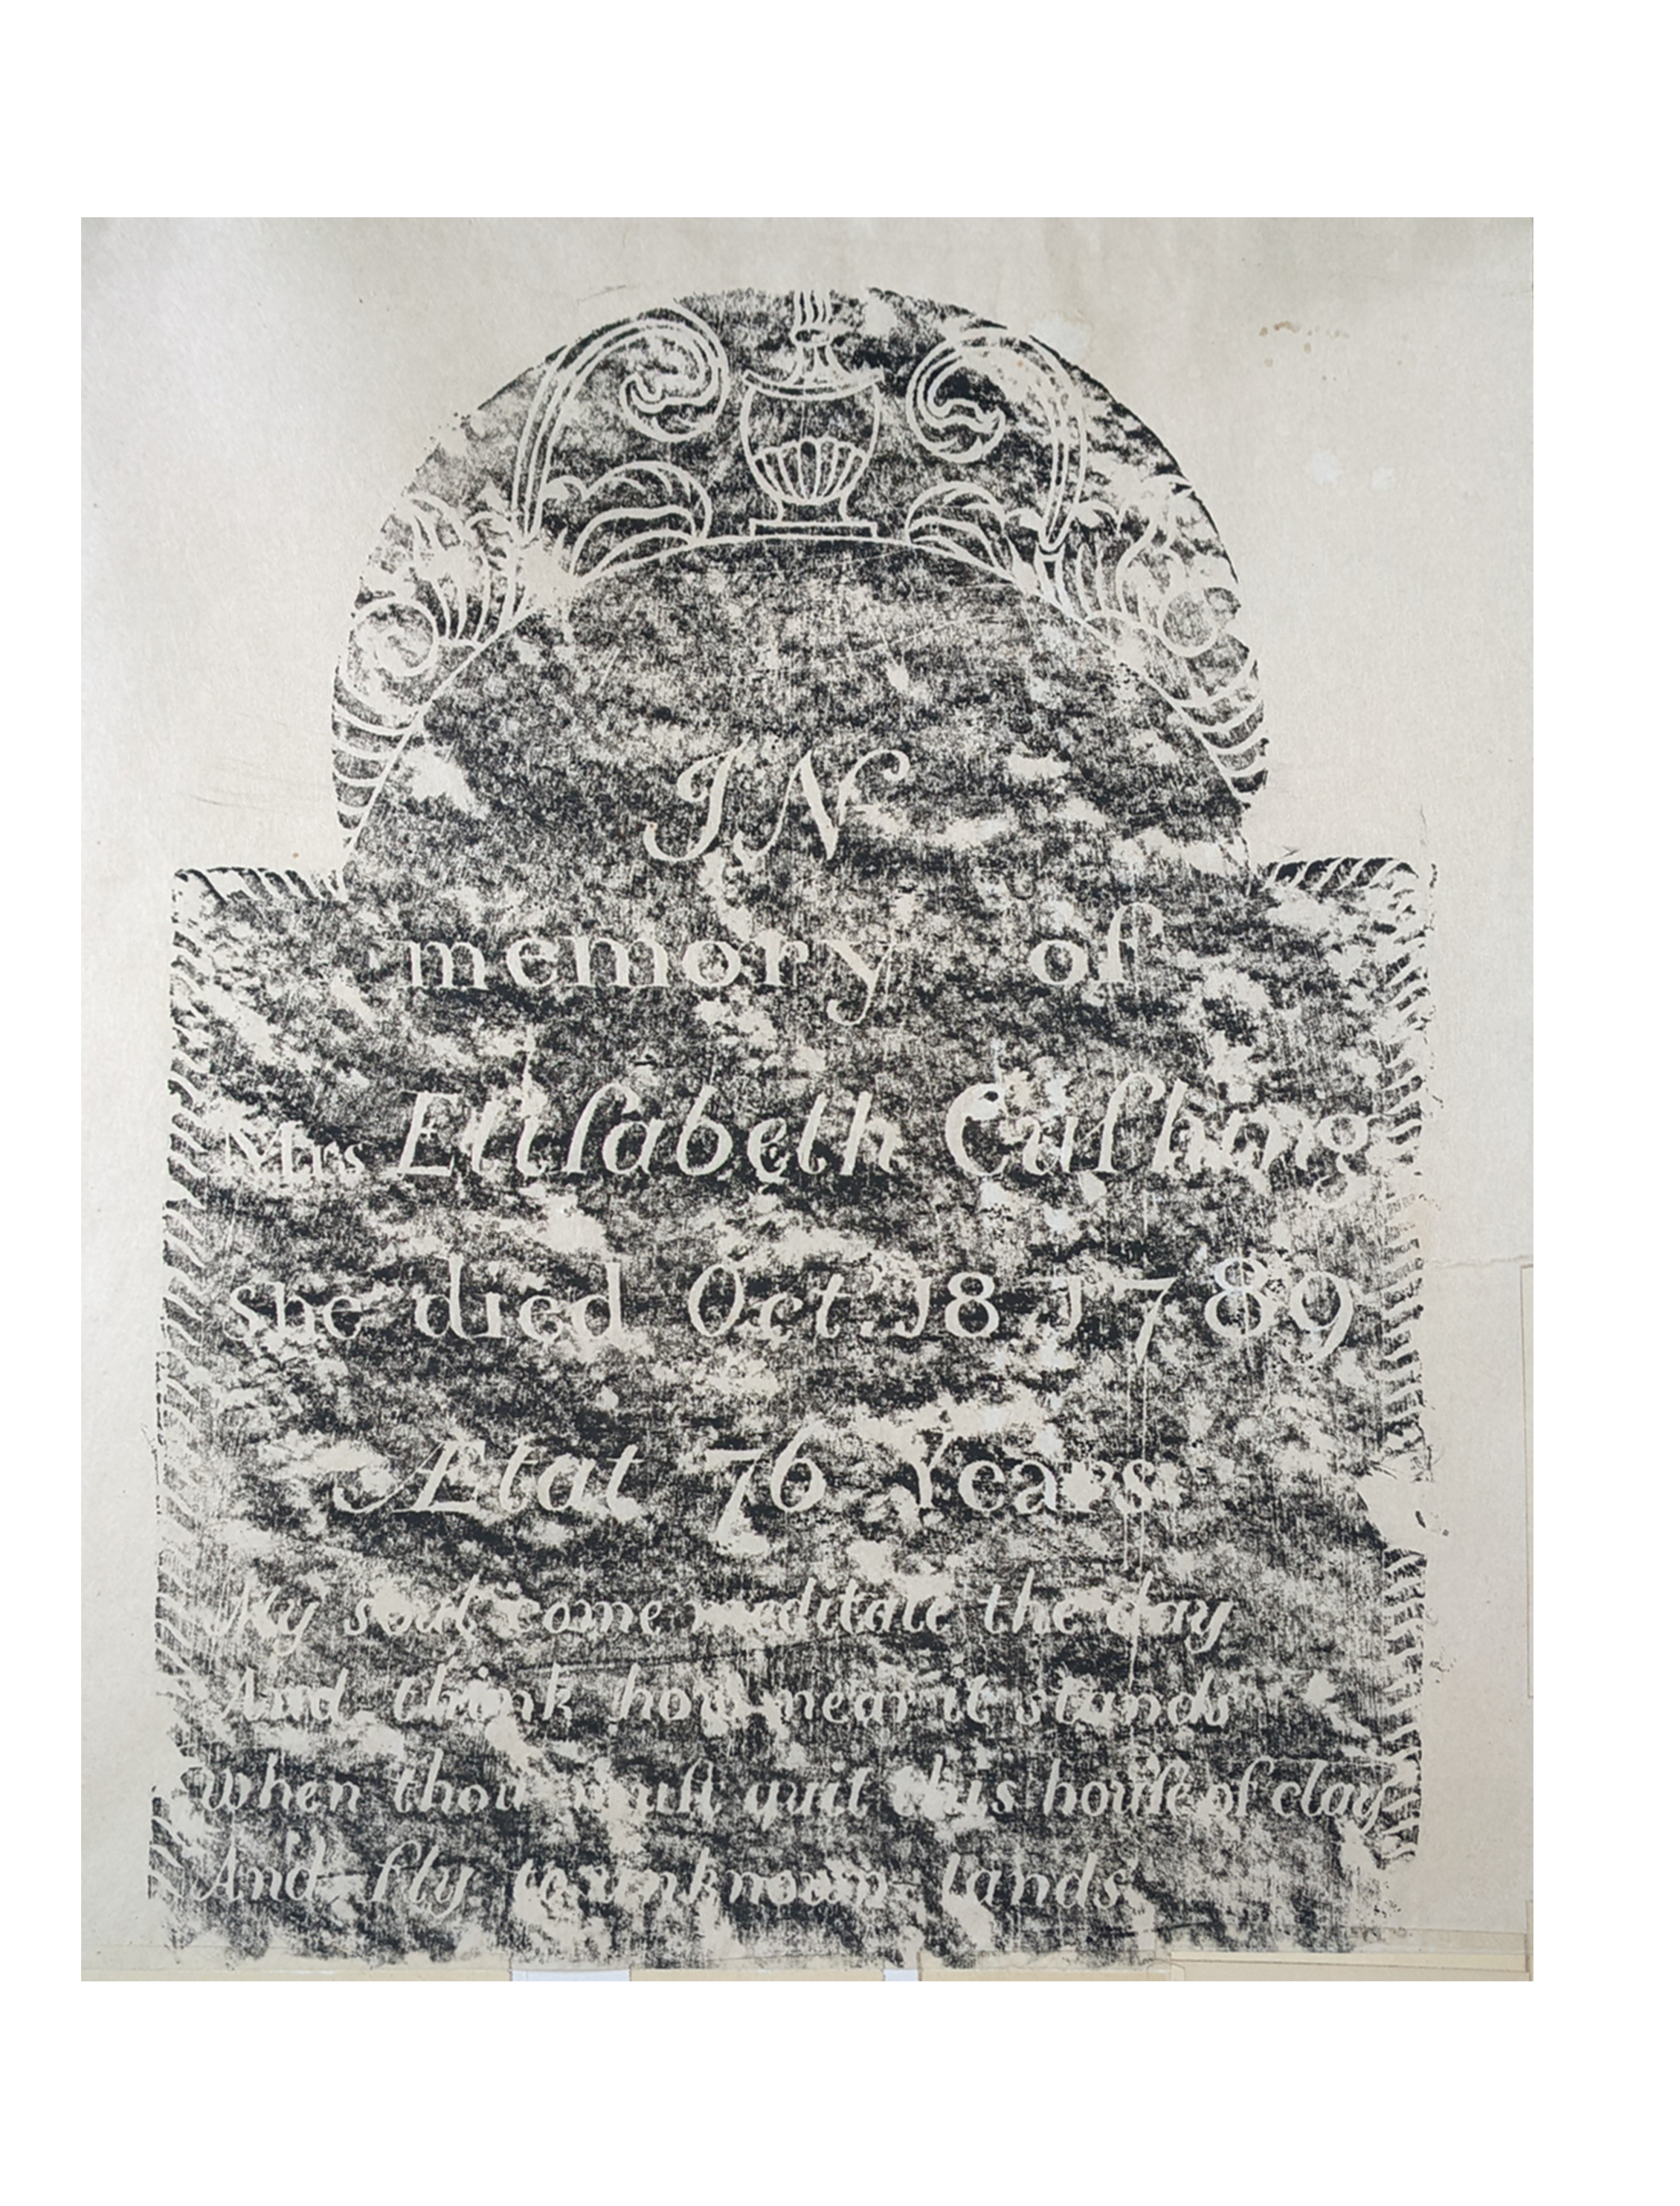 IN
memory of
Mrs Eliſabeth Cuſhing
she died Oct. 18 1789
Ætat 76 Years
My soul come meditate the day
And think how near it stands
When thou muſt quit this houſe of clay
And fly to unknown lands